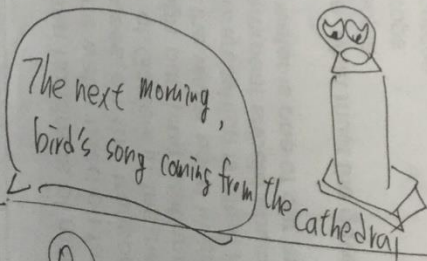 The next morning,
bird's song coming from the cathedral